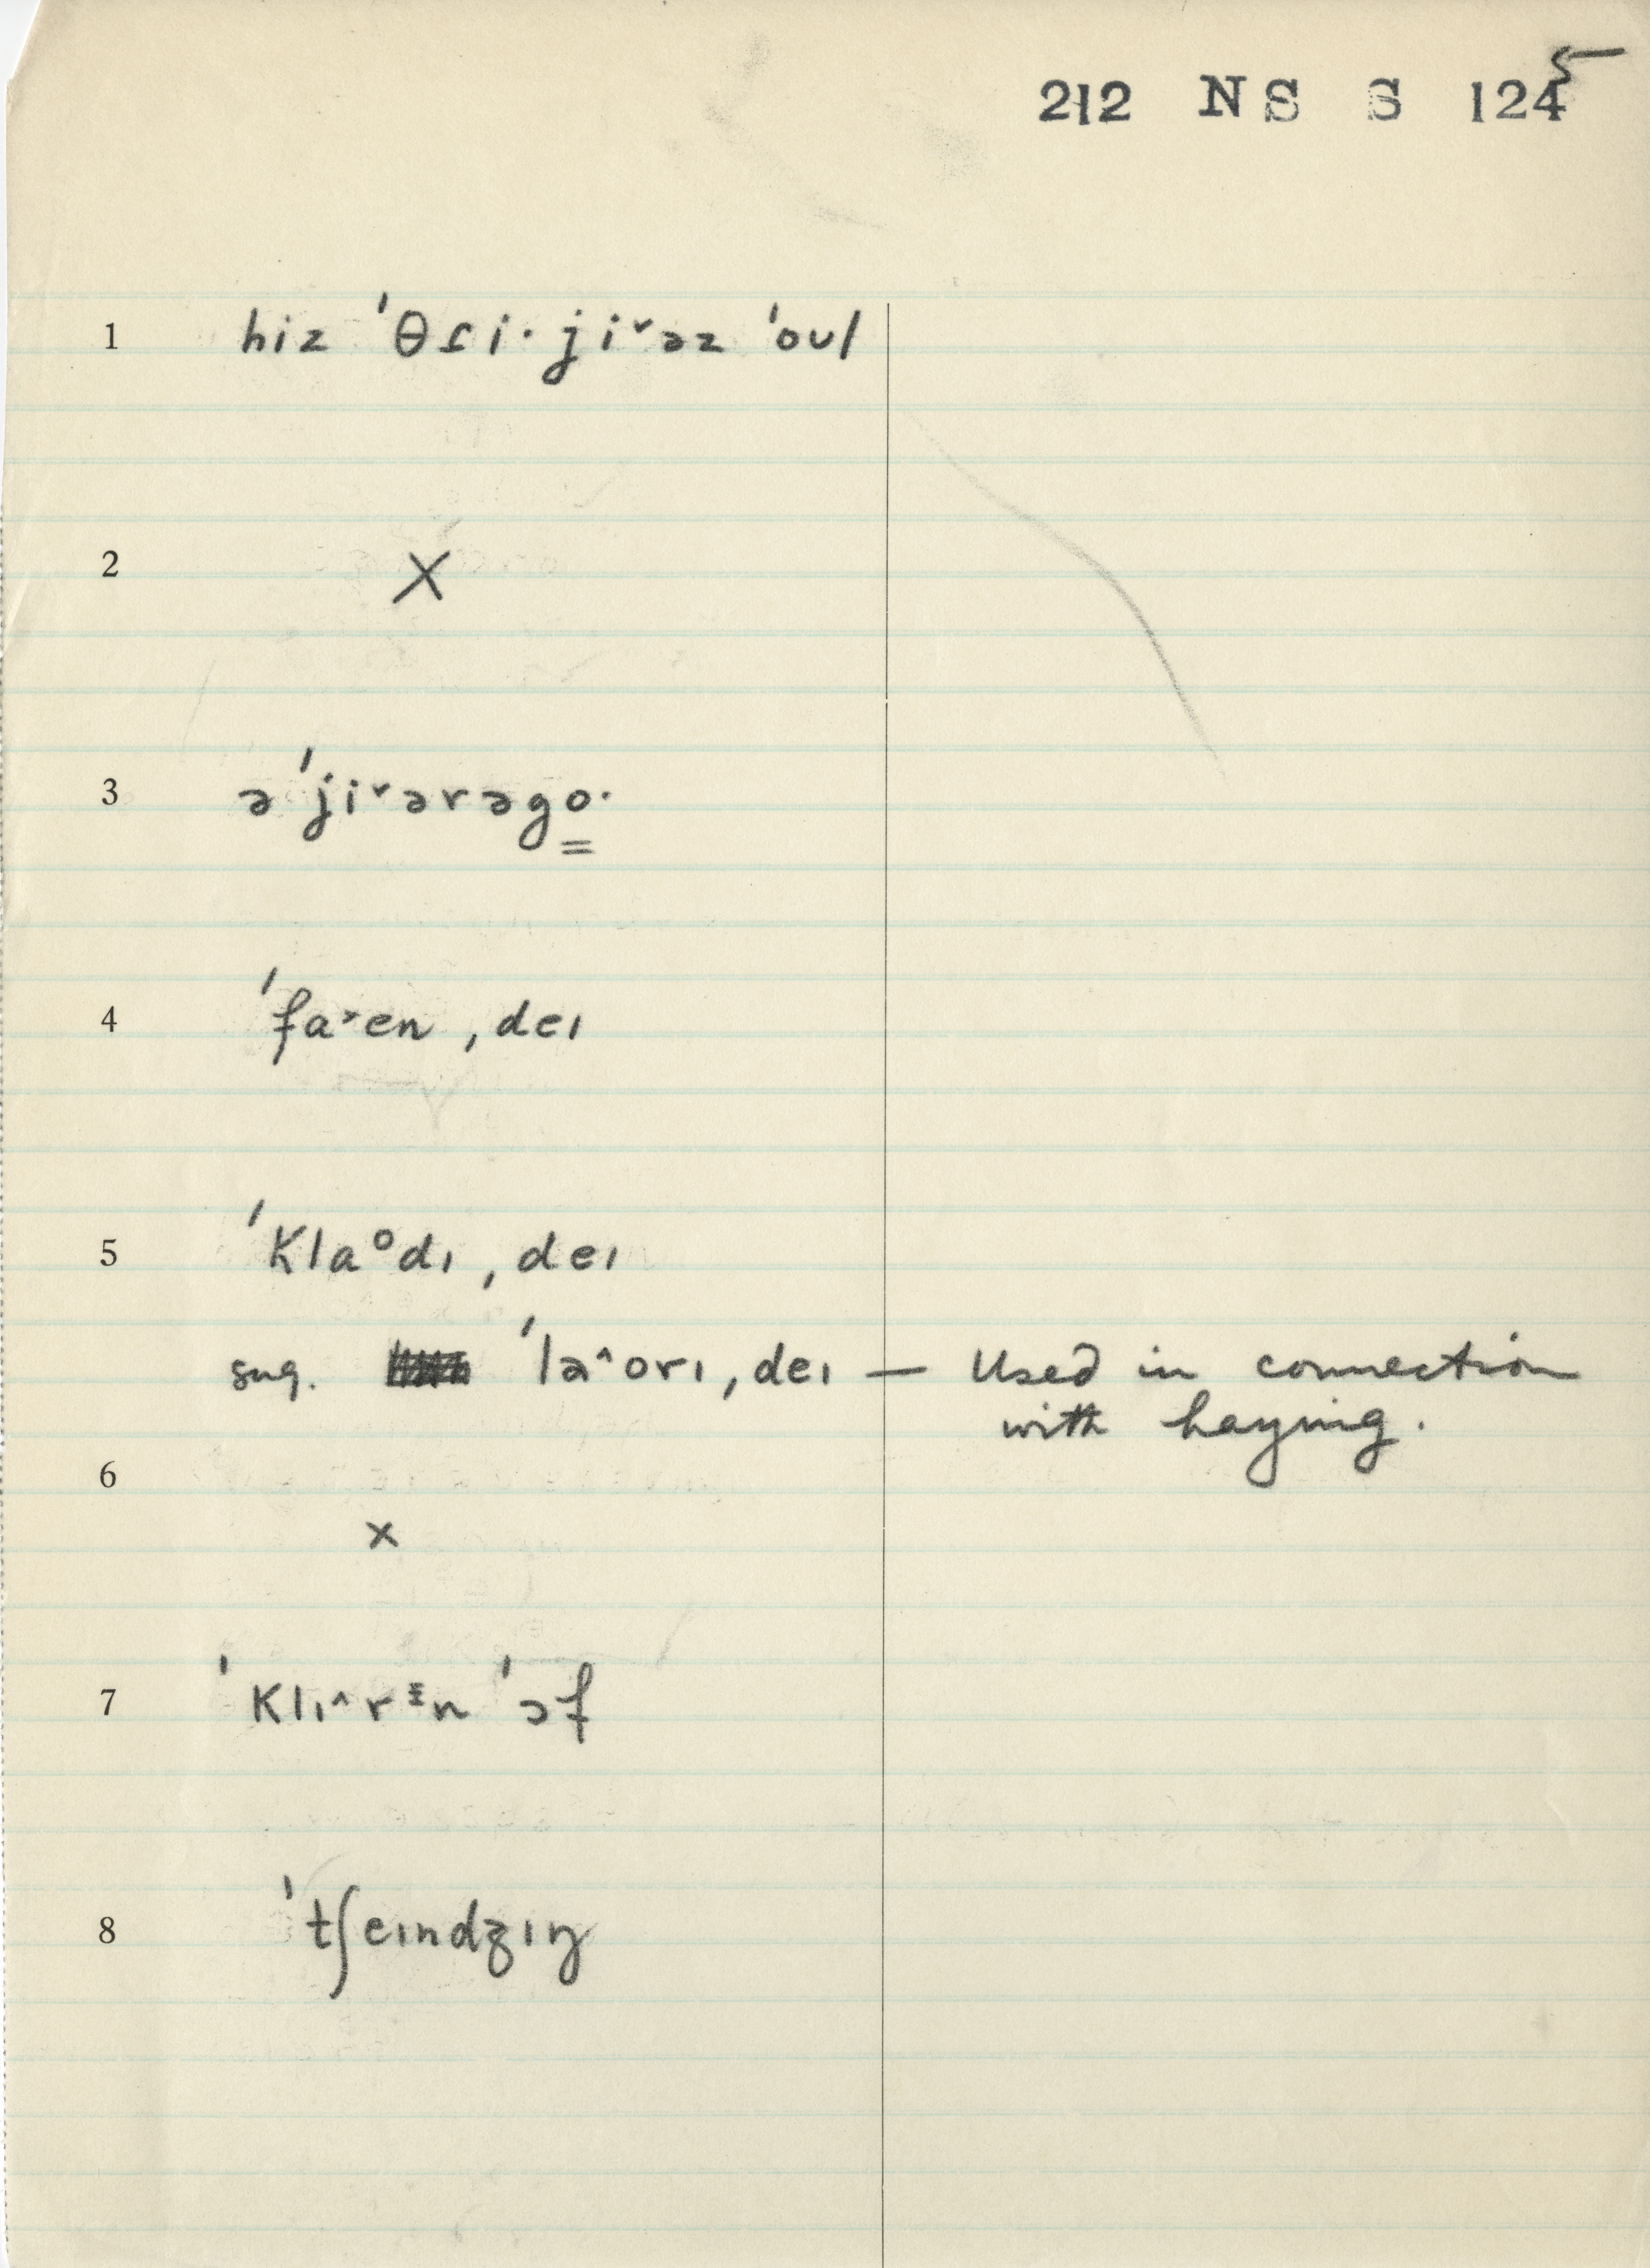 212 NS S 1245
1 hiz ˈθɾi·ji˅əz ˈoʊl
2 X
3 əˈji˅ərəgo̳·
4 ˈfa˃en ˌdeɪ
5 ˈklaᵒdɪ ˌdeɪ
sug. ˈla^orɪ ˌdeɪ — Used in connection
with haying.
6 x
7 ˈklɪ^rᵻn ˈɔf
8 ˈtʃeɪndʒɪŋ